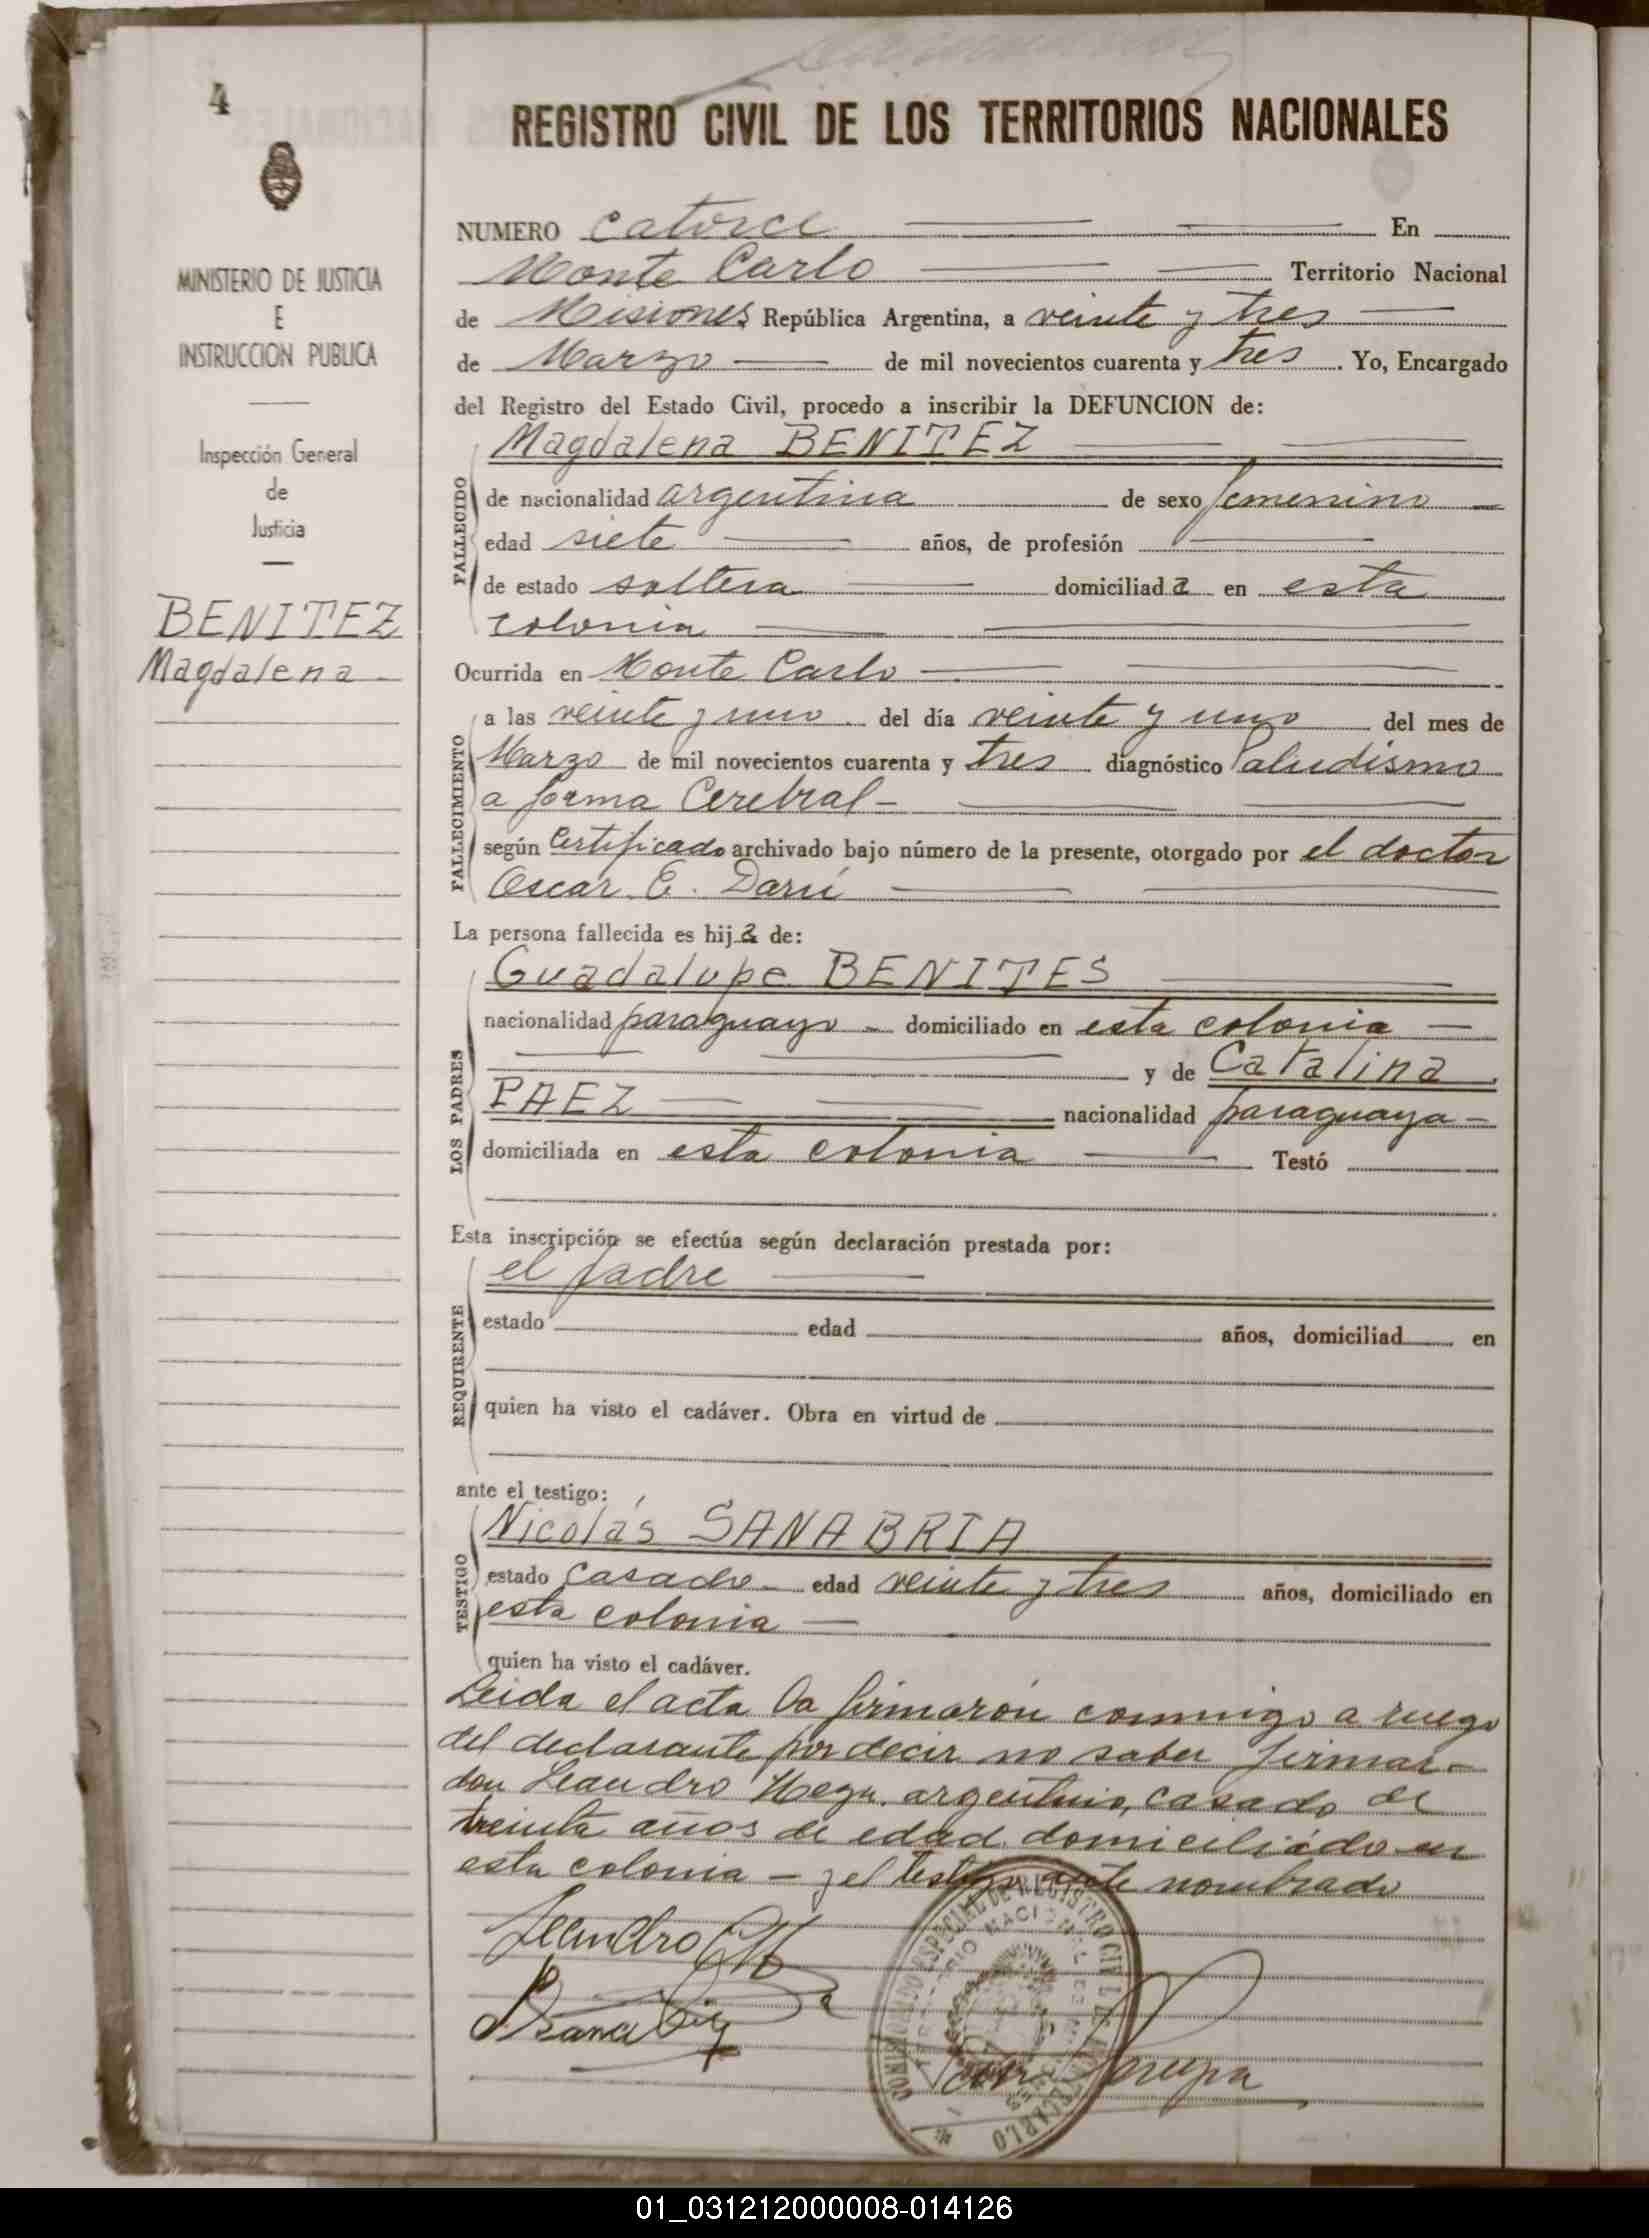 4
REGISTRO CIVIL DE LOS TERRITORIOS NACIONALES
MINISTERIO DE JUSTICIA
E
INSTRUCCION PUBLICA
Inspección General
de
Justicia
BENITEZ
Magdalena
NUMERO catorce En
Monte Carlo Territorio Nacional
de Misiones República Argentina, a veinte y tres
de Marzo de mil novecientos cuarenta y tres. Yo, Encargado
del Registro del Estado Civil, procedo a inscribir la DEFUNCION de:
FALLECIDO
Magdalena BENITEZ
de nacionalidad argentina de sexo femenino
edad siete años, de profesión
de estado soltera domiciliada en esta
colonia
Ocurrida en Monte Carlo
FALLECIMIENTO
a las veinte y uno del día veinte y uno del mes de
Marzo de mil novecientos cuarenta y tres diagnóstico Paludismo
a forma Cerebral
según Certificado archivado bajo número de la presente, otorgado por el doctor
Oscar E. Darú
La persona fallecida es hija de:
LOS PADRES
Guadalupe BENITES
nacionalidad paraguayo domiciliado en esta colonia
y de Catalina
PAEZ nacionalidad paraguaya
domiciliada en esta colonia Testó
Esta inscripción se efectúa según declaración prestada por:
REQUIRENTE
el padre
estado edad años, domiciliad en
quien ha visto el cadáver. Obra en virtud de
ante el testigo:
TESTIGO
Nicolás SANABRIA
estado casado edad veinte y tres años, domiciliado en
esta colonia
quien ha visto el cadáver.
Leida el acta la firmarón conmigo a ruego
del declarante por decir no saber firmar
don Leandro argentino, casado de
treinta años de edad domiciliado en
esta colonia — y el testigo ante nombrado
Leandro
Sanabria
REGISTRO CIVIL
01_031212000008-014126